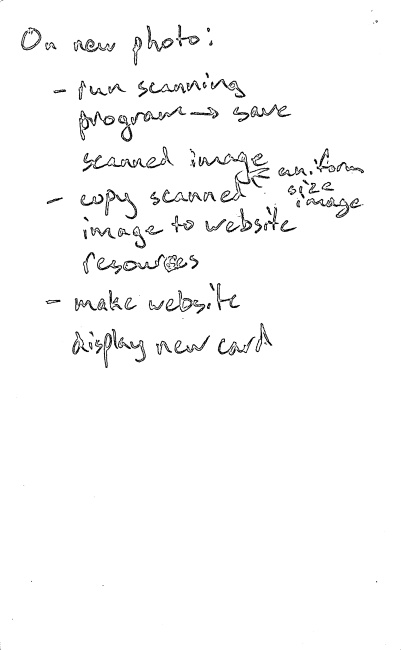 On new photo:
- run scanning
program → save
scanned image
uniform
size
image
- copy scanned
image to website
resources
- make website
display new card